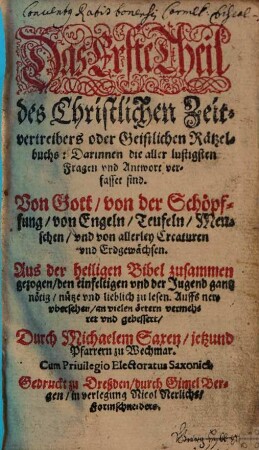 Das Erste Theil
des Christlichen Zeit-
vertreibers oder Geistlichen Rätzel-
buchs: Darinnen die aller lustigsten
Fragen vnd Antwort ver-
fasset sind.
Von Gott/ von der Schöpf-
fung/ von Engeln/ Teufeln/ Men-
schen/ vnd von allerley Creaturen
vnd Erdgewächsen.
Aus der heiligen Bibel zusammen
gezogen/ den einfeltigen vnd der Jugend gantz
nötig/ nütze vnd lieblich zu lesen. Auffs new
vbersehen/ an vielen örtern vermeh-
ret vnd gebessert/
Durch Michaelem Saxen/ jetzund
Pfarrern zu Wechmar.
Cum Priuilegio Electoratus Saxonici.
Gedruckt zu Dreßden/ durch Gimel Ber-
gen/ in verlegung Nicol Nerlichs/
Formschneiders.